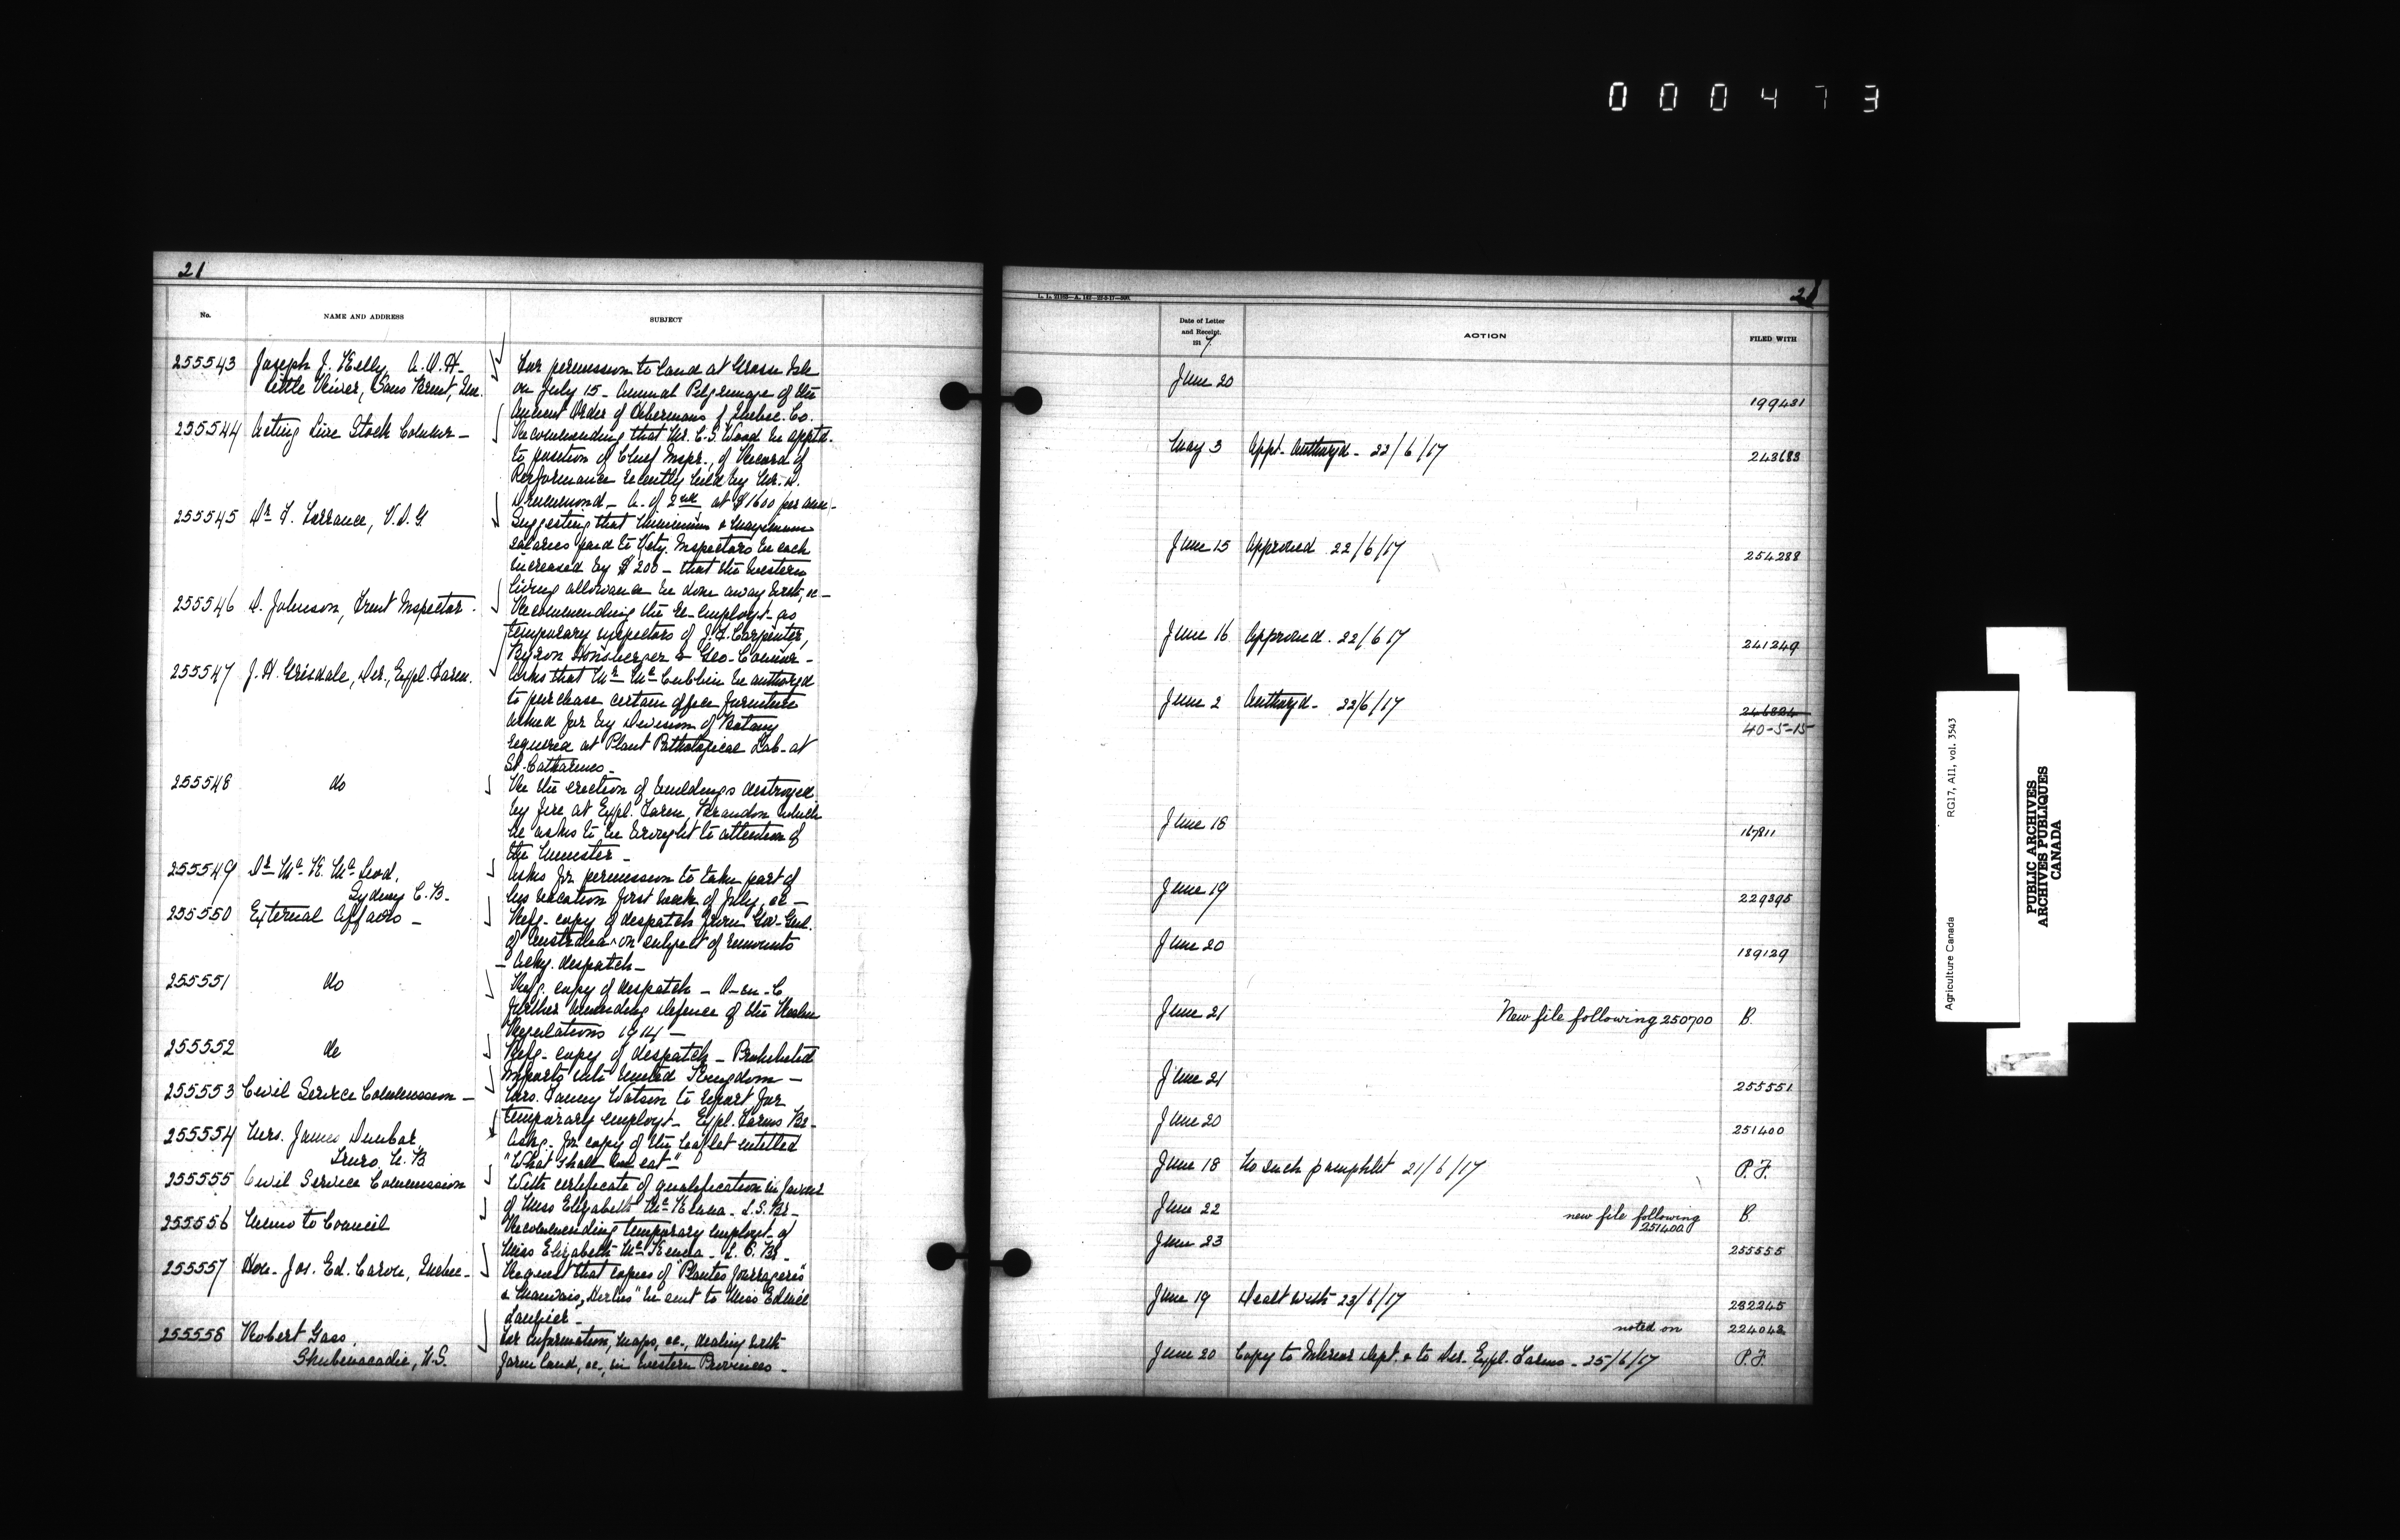 000473
21
No.
NAME AND ADDRESS
SUBJECT
255543 Joseph J. Kelly, A.O.H. For permission to land at Grosse Isle
Little River, Sans Bruit, Que. on July 15 - Annual Pilgrimage of the
Ancient Order of Hibernians of Quebec Co.
255544 Acting Live Stock Commr - Recommending that Mr. C.S. Wood be apptd.
to position of Chief Inspr., of Record of
Performance recently held by Mr. D.
Drummond - A. of 2nd at $1600 per ann -
255545 Dr F. Torrance, V.D.G. Suggesting that Minimum & Maximum
salaries paid to Vety. Inspectors be each
increased by $200 - that the western
living allowance be done away with, &c -
255546 D. Johnson, Fruit Inspector. Recommending the re-employt. as
temporary inspectors of J.F. Carpenter,
Byron Honsberger & Geo.
255547 J.H. Grisdale, Dir., Expl. Farm. Asks that Mr McCubbin be authorzd
to purchase certain office furniture
asked for by Division of Botany
required at Plant Pathological Lab. at
St. Catharines.
255548 do Re the erection of buildings destroyed
by fire at Expl. Farm, Brandon which
he asks to be brought to attention of
the Minister -
255549 Dr Mc K. McLeod, Asks for permission to take part of
Sydney C.B. his vacation first week of July, &c -
255550 External Affairs - Refg. copy of despatch from Gov-Genl.
of Australia on subject of remounts
- Ackg. despatch -
255551 do Refg. copy of despatch - O-in-C
further amending Defence of the Realm
Regulations 1914 -
255552 do Refg. copy of despatch - Prohibited
imports into United Kingdom -
255553 Civil Service Commission - Mrs. Fanny Watson to report for
temporary employt. Expl. Farms Br.
255554 Mrs. James Dunbar Askg. for copy of the leaflet entitled
Truro N.B "What shall we eat"
255555 Civil Service Commission With certificate of qualification in favour
of Miss Elizabeth McKenna - L.S. Br -
255556 Memo to Council Recommending temporary employt. of
Miss Elizabeth McKenna - L.S. Br -
255557 Hon. Jos. Ed. Caron, Quebec - Request that copies of "Plantes fourrageres"
& Mauvais, Herbes" be sent to Miss
255558 Robert Gass For information, maps, &c., dealing with
Shubenacadie, N.S. farm land, &c, in western Provinces -
21
Date of Letter
and Receipt.
191 7
ACTION
FILED WITH
June 20 199431
May 3 Appt. Authorzd - 22/6/17 243683
June 15 Approved 22/6/17 254288
June 16 Approved. 22/6 17 241249
June 2 Authorzd - 22/6/17 246824
40-5-15
June 18 167811
June 19 229395
June 20 189129
June 21 New file following 250700 B.
June 21 255551
June 20 251400
June 18 No such pamphlet 21/6/17 P.F.
June 22 new file following B.
251400
June 23 255555
June 19 Dealt with 23/6/17 232245
noted on 224042
June 20 Copy to Interior Dept. & to Dir. Expl. Farms - 25/6/17 P.F.
Agriculture Canada RG17, AII, vol. 3543
PUBLIC ARCHIVES
ARCHIVES PUBLIQUES
CANADA